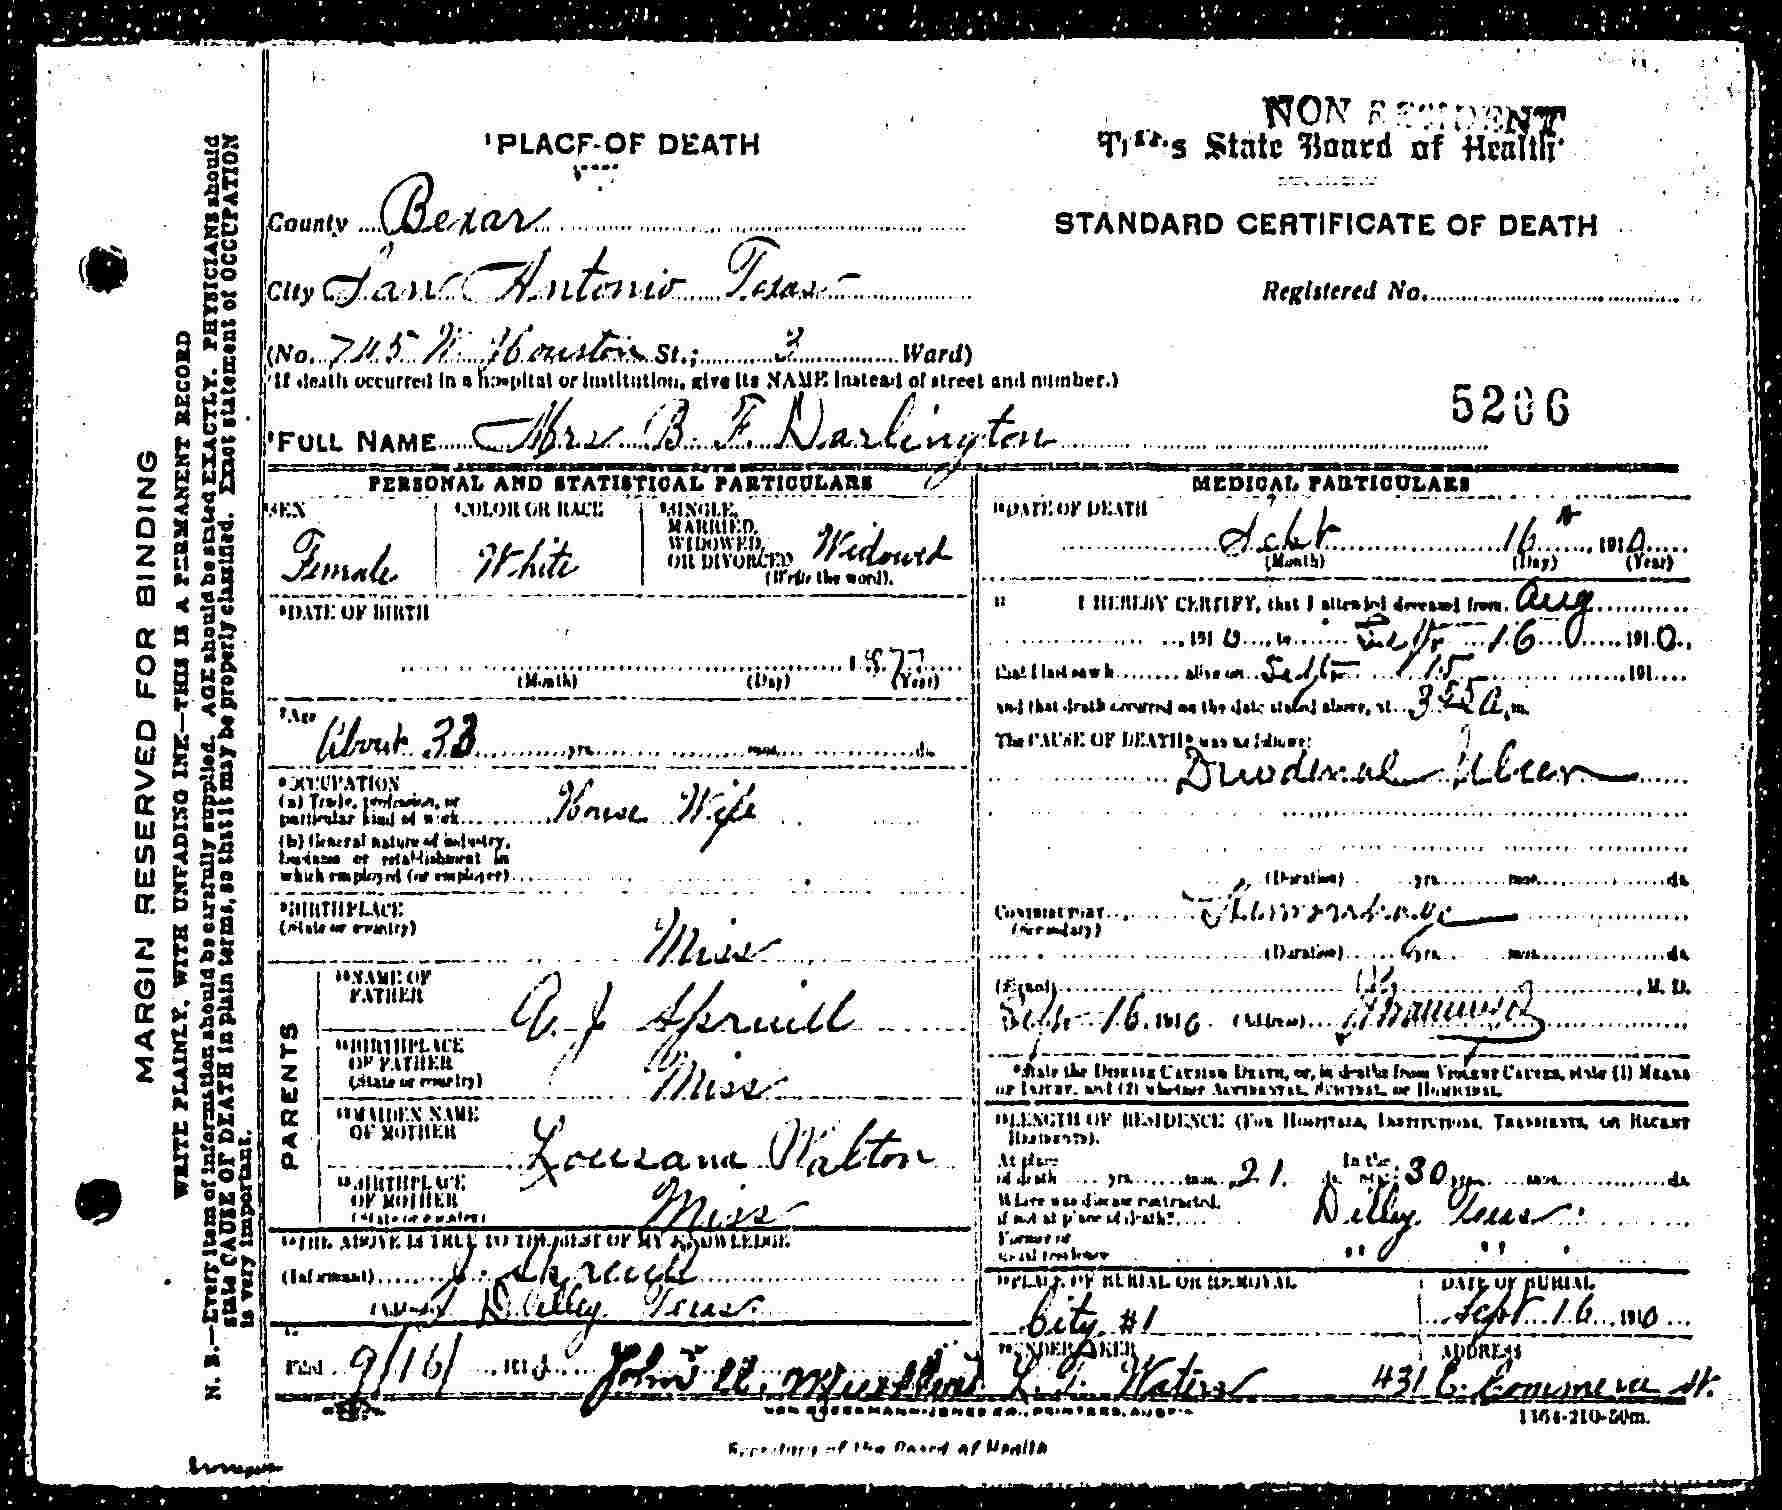 NON RESIDENT
¹PLACE OF DEATH
Texas State Board of Health
County Bexar
STANDARD CERTIFICATE OF DEATH
City San Antonio Texas
Registered No.
(No. 745 W Houston St.; 3 Ward)
(If death occurred in a hospital or institution, give its NAME instead of street and number.)
5206
FULL NAME Mrs B. F. Darlington
PERSONAL AND STATISTICAL PARTICULARS
SEX
Female
COLOR OR RACE
White
SINGLE,
MARRIED,
WIDOWED,
OR DIVORCED
(Write the word).
Widowed
DATE OF BIRTH
1877
(Month) (Day) (Year)
Age
About 33 yrs. mos. ds.
OCCUPATION
(a) Trade, profession, or
particular kind of work House Wife
(b) General nature of industry,
business or establishment in
which employed (or employer)
BIRTHPLACE
(State or country)
Miss
PARENTS
NAME OF
FATHER
A. J. Spruill
BIRTHPLACE
OF FATHER
(State or country)
Miss
MAIDEN NAME
OF MOTHER
Lousana Walton
BIRTHPLACE
OF MOTHER
(State or country)
Miss
THE ABOVE IS TRUE TO THE BEST OF MY KNOWLEDGE
(Informant) J. Spruill
(Address) Dilley Texas
Filed 9/16/ 1910
MEDICAL PARTICULARS
DATE OF DEATH
Sept 16 1910
(Month) (Day) (Year)
I HEREBY CERTIFY, that I attended deceased from Aug
1910, to Sept 16 1910,
that I last saw h alive on Sept 15 191
and that death occurred on the date stated above, at 3 55 a. m.
The CAUSE OF DEATH* was as follows:
Duodenal Ulcer
(Duration) yrs. mos. ds.
Contributory Hemorrhage
(Secondary)
(Duration) yrs. mos. ds.
(Signed) M. D.
Sept 16 1910 (Address)
*State the Disease Causing Death, or, in deaths from Violent Causes, state (1) Means
of Injury, and (2) whether Accidental, Suicidal, or Homicidal.
LENGTH OF RESIDENCE (For Hospitals, Institutions, Transients, or Recent
Residents).
At place
of death yrs. mos. 21 ds.
In the
state 30 yrs. mos. ds.
Where was disease contracted,
if not at place of death? Dilley Texas
Former or
usual residence " " "
PLACE OF BURIAL OR REMOVAL
City #1
DATE OF BURIAL
Sept 16 1910
UNDERTAKER
Waters
ADDRESS
431 E. Commerce St.
VON BOECKMANN-JONES CO., PRINTERS, AUSTIN
1164-210-50m.
Secretary of the Board of Health
MARGIN RESERVED FOR BINDING
WRITE PLAINLY, WITH UNFADING INK—THIS IS A PERMANENT RECORD
N. B.—Every item of information should be carefully supplied. AGE should be stated EXACTLY. PHYSICIANS should
state CAUSE OF DEATH in plain terms, so that it may be properly classified. Exact statement of OCCUPATION
is very important.